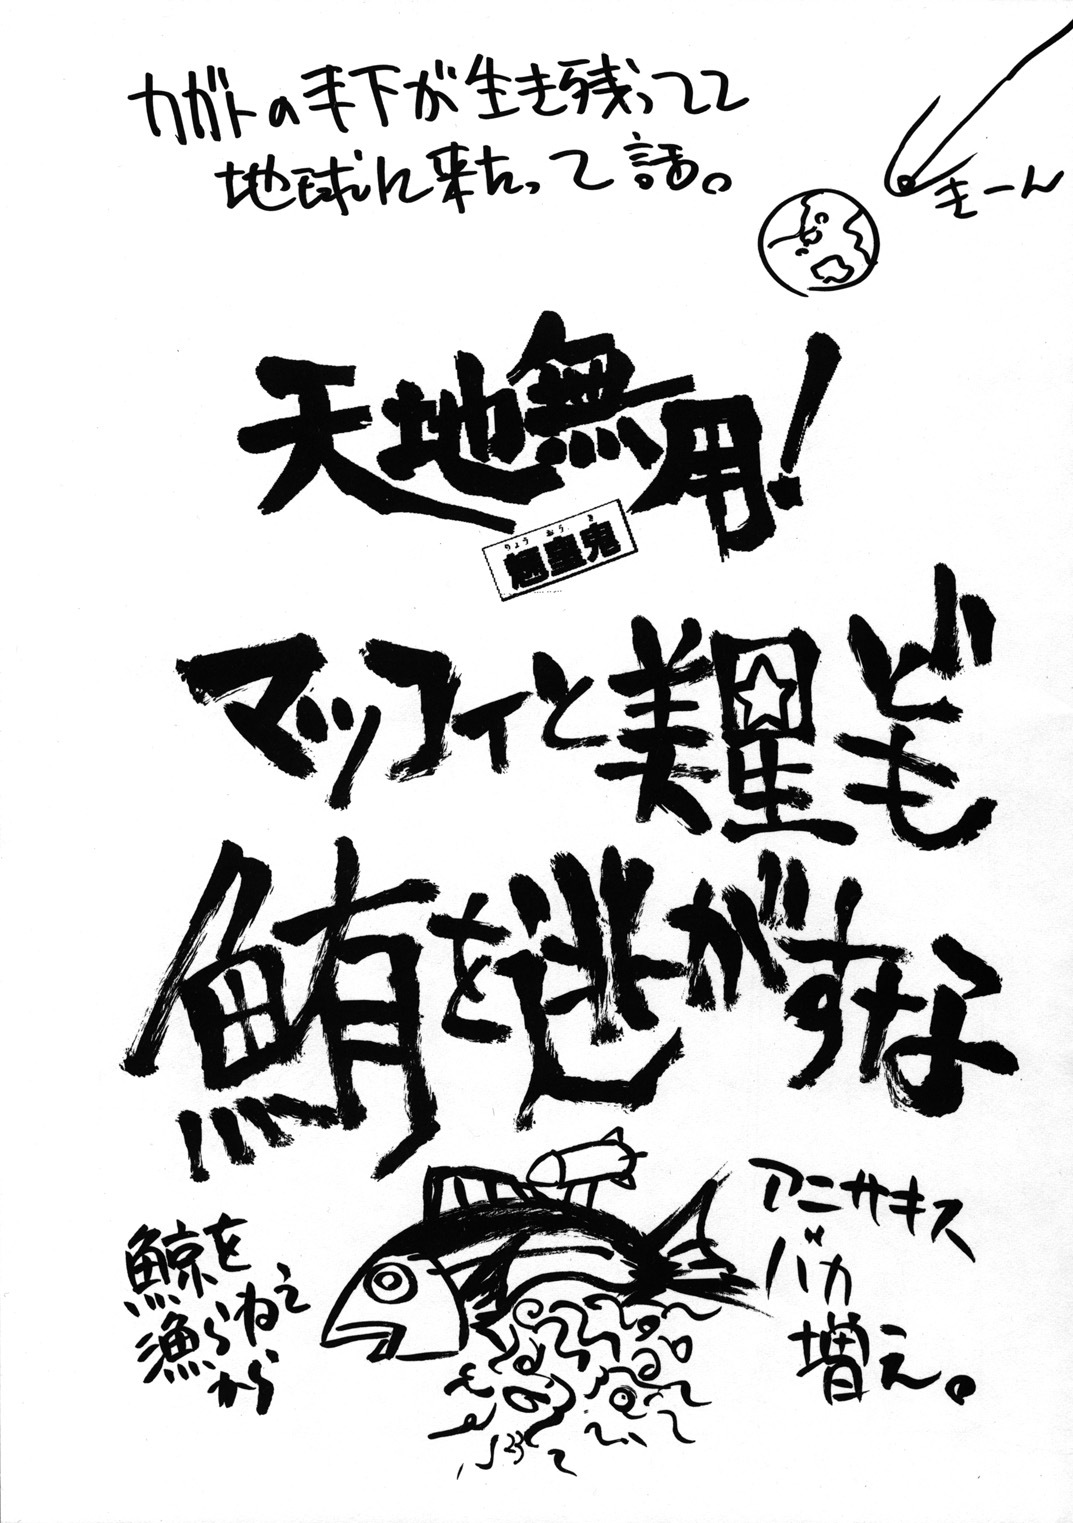 カガトの手下が生き残ってて
地球に来たって話。
きーん
天地無用!
りょうおうき
魎皇鬼
マッコイと美星ど
も
鮪を逃がすな
鯨を
漁らねえ
から
アニサキス
バカ
増え。